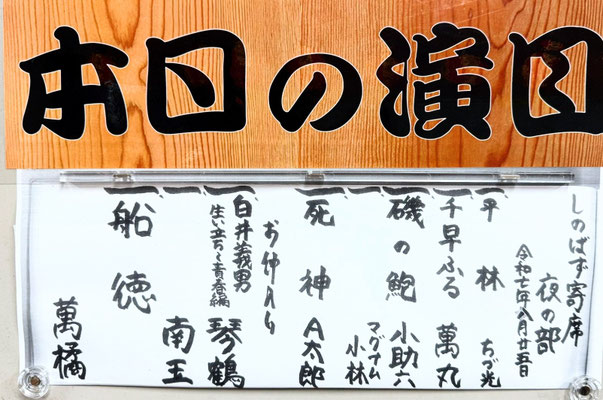 本日の演目
しのばず寄席
夜の部
令和七年八月廿五日
一 平林 ちづ光
一 千早ふる 萬丸
一 磯の鮑 小助六
一 マグナム小林
一 死神 A太郎
お仲入り
一 白井義男 生い立ち〜青春編 琴鶴
一 南玉
一 船徳 萬橘